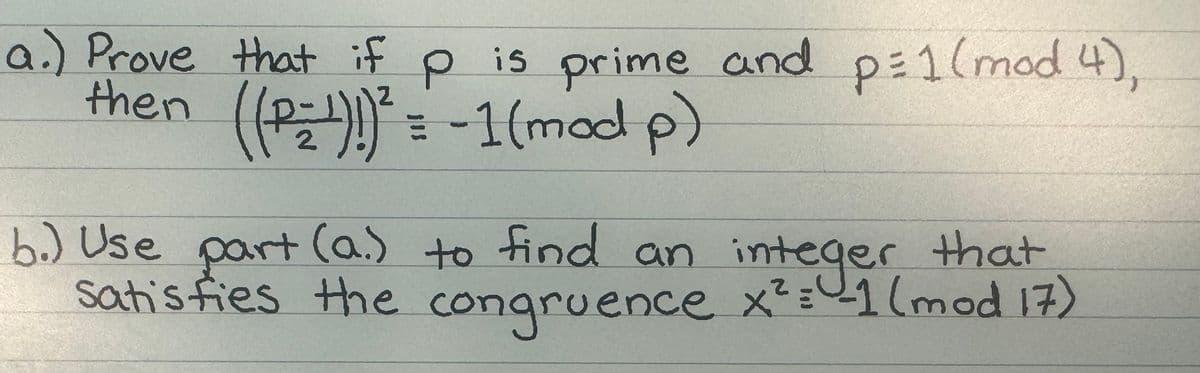 a.) Prove that if p is prime and p≡1(mod 4),
then ((p-1/2)!)² ≡ -1(mod p)
b.) Use part (a.) to find an integer that
satisfies the congruence x² ≡ -1(mod 17)